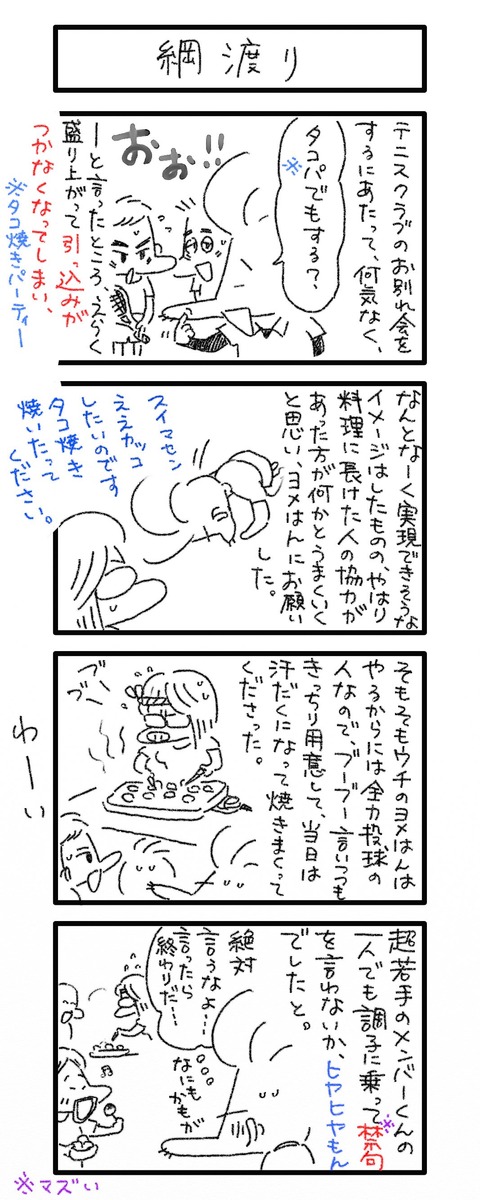 綱渡り
テニスクラブのお別れ会を
するにあたって、何気なく、
タコパでもする?、
※
おお!!
ーと言ったところ、えらく
盛り上がって引っ込みが
つかなくなってしまい、
※タコ焼きパーティー
なんとなーく実現できそうな
イメージはしたものの、やはり
料理に長けた人の協力が
あった方が何かとうまくいく
と思い、ヨメはんにお願い
した。
スイマセン
ええカッコ
したいのです
タコ焼き
焼いたって
ください。
そもそもウチのヨメはんは
やるからには全力投球の
人なので、ブーブー言いつつも
きっちり用意して、当日は
汗だくになって焼きまくって
くださった。
ブツブツ
わーい
超若手のメンバーくんの
一人でも調子に乗って禁句
※
を言わないか、ヒヤヒヤもん
でしたと。
絶対
言うなよ…
言ったら
終わりだ…
なにも
かもが
※マズい